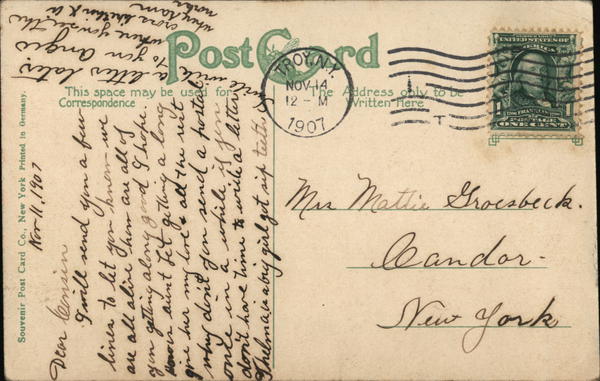 Post Card
This space may be used for
Correspondence
The Address only to be
Written Here
TROY, N.Y.
NOV 14
12-M
1907
UNITED STATES OF
AMERICA
POSTAGE
ONE CENT
Souvenir Post Card Co., New York Printed in Germany.
Nov 11, 1907
Dear Cousin
I will send you a few
lines to let you know we
are all alive how are all of
you getting along good I hope.
aunt Het getting a long
give her my love & all the rest
why don't you send a postal
once in a while if you
don't have time to write a letter
Thelma is a big girl got six teeth
will write a letter later
to you Angie
when you see the
cross
Mrs Mattie Groesbeck.
Candor-
New York